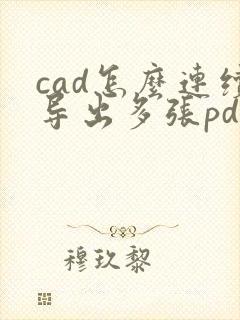 cad怎麽連续
导出多張pd
穆玖黎